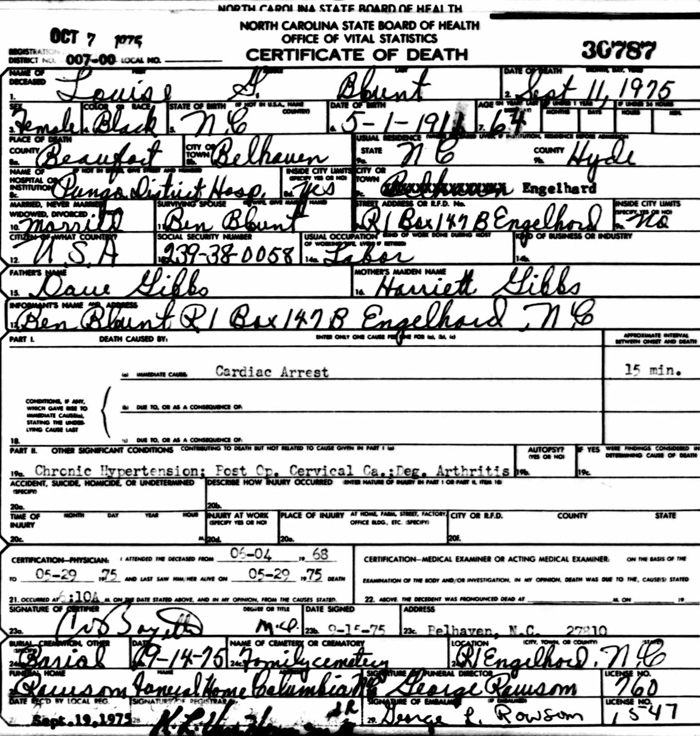 NORTH CAROLINA STATE BOARD OF HEALTH
NORTH CAROLINA STATE BOARD OF HEALTH
OCT 7 1975
OFFICE OF VITAL STATISTICS
CERTIFICATE OF DEATH
30787
REGISTRATION DISTRICT NO. 007-00 LOCAL NO.
NAME OF DECEASED FIRST MIDDLE LAST DATE OF DEATH MONTH, DAY, YEAR
1. Louise G. Blunt 2. Sept 11, 1975
SEX COLOR OR RACE STATE OF BIRTH (IF NOT IN U.S.A., NAME COUNTRY) DATE OF BIRTH AGE IF UNDER 1 YEAR IF UNDER 24 HOURS
3. Female 4. Black 5. N.C 6. 5-1-1911 7. 64 MONTHS DAYS HOURS MIN.
PLACE OF DEATH USUAL RESIDENCE
COUNTY CITY OR TOWN STATE COUNTY
8a. Beaufort Belhaven 9a. N C 9b. Hyde
NAME OF HOSPITAL OR INSTITUTION INSIDE CITY LIMITS (SPECIFY YES OR NO) CITY OR TOWN
8c. Pungo District Hosp. 8d. yes 9c. Engelhard
MARRIED, NEVER MARRIED, WIDOWED, DIVORCED SURVIVING SPOUSE STREET ADDRESS OR R.F.D. NO. INSIDE CITY LIMITS (SPECIFY YES OR NO)
10. Married 11. Ben Blunt R 1 Box 147 B Engelhard No
CITIZEN OF WHAT COUNTRY? SOCIAL SECURITY NUMBER USUAL OCCUPATION KIND OF BUSINESS OR INDUSTRY
12. U.S.A 239-38-0058 14a. Labor 14b.
FATHER'S NAME MOTHER'S MAIDEN NAME
15. Dave Gibbs 16. Harriett Gibbs
INFORMANT'S NAME AND ADDRESS
17. Ben Blunt R 1 Box 147 B Engelhard, N C
PART I. DEATH CAUSED BY: ENTER ONLY ONE CAUSE PER LINE FOR (a), (b), (c) APPROXIMATE INTERVAL BETWEEN ONSET AND DEATH
(a) IMMEDIATE CAUSE Cardiac Arrest 15 min.
CONDITIONS, IF ANY, WHICH GAVE RISE TO IMMEDIATE CAUSE(a), STATING THE UNDERLYING CAUSE LAST
(b) DUE TO, OR AS A CONSEQUENCE OF:
18. (c) DUE TO, OR AS A CONSEQUENCE OF:
PART II. OTHER SIGNIFICANT CONDITIONS CONTRIBUTING TO DEATH BUT NOT RELATED TO CAUSE GIVEN IN PART I (a) AUTOPSY? (YES OR NO) IF YES WERE FINDINGS CONSIDERED IN DETERMINING CAUSE OF DEATH
19a. Chronic Hypertension; Post Op. Cervical Ca.;Deg. Arthritis 19b. 19c.
ACCIDENT, SUICIDE, HOMICIDE, OR UNDETERMINED (SPECIFY) DESCRIBE HOW INJURY OCCURRED (ENTER NATURE OF INJURY IN PART I OR PART II, ITEM 18)
20a. 20b.
TIME OF INJURY MONTH DAY YEAR HOUR INJURY AT WORK (SPECIFY YES OR NO) PLACE OF INJURY AT HOME, FARM, STREET, FACTORY, OFFICE BLDG., ETC. (SPECIFY) CITY OR R.F.D. COUNTY STATE
20c. M. 20d. 20e. 20f.
CERTIFICATION-PHYSICIAN: I ATTENDED THE DECEASED FROM 06-04 1968 CERTIFICATION-MEDICAL EXAMINER OR ACTING MEDICAL EXAMINER: ON THE BASIS OF THE
TO 05-29 1975 AND LAST SAW HIM/HER ALIVE ON 05-29 1975 DEATH EXAMINATION OF THE BODY AND/OR INVESTIGATION, IN MY OPINION, DEATH WAS DUE TO THE, CAUSE(S) STATED
21. OCCURRED AT 6:10A M. ON THE DATE STATED ABOVE, AND IN MY OPINION, FROM THE CAUSES STATED. 22. ABOVE THE DECEDENT WAS PRONOUNCED DEAD AT M. ON 19
SIGNATURE OF CERTIFIER DEGREE OR TITLE DATE SIGNED ADDRESS
23a. M.D. 23b. 9-15-75 23c. Belhaven, N.C. 27810
BURIAL, CREMATION, OTHER DATE NAME OF CEMETERY OR CREMATORY LOCATION (CITY, TOWN, OR COUNTY) (STATE)
24a. Burial 9-14-75 24c. Family cemetery R1 Engelhard, N.C
FUNERAL HOME SIGNATURE OF FUNERAL DIRECTOR LICENSE NO.
Rawsom Funeral Home Columbia NC George Rawsom 760
DATE REC'D BY LOCAL REG. SIGNATURE OF REGISTRAR SIGNATURE OF EMBALMER LICENSE NO.
Sept.19,1975 29. George L. Rowsom 1547